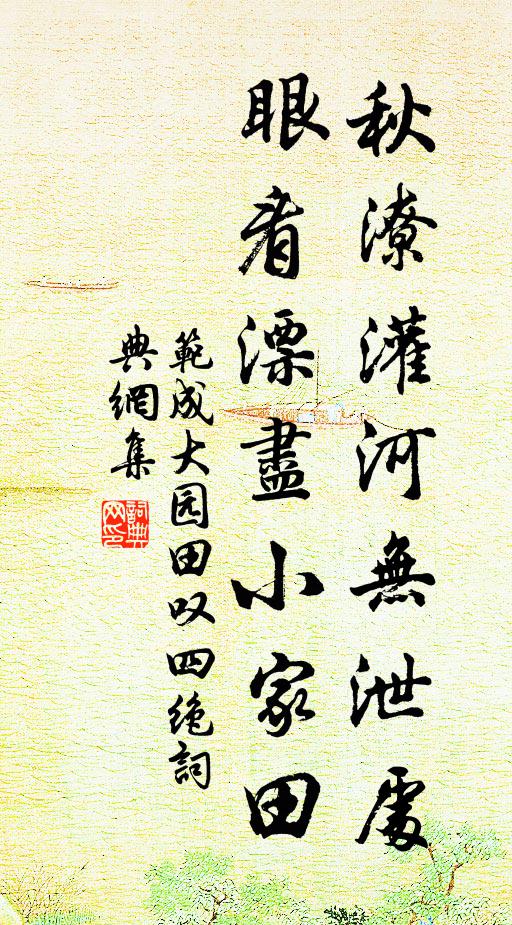 秋潦灌河無泄處
眼看漂盡小家田
範成大园田叹四绝詞
典網集
詞典网印